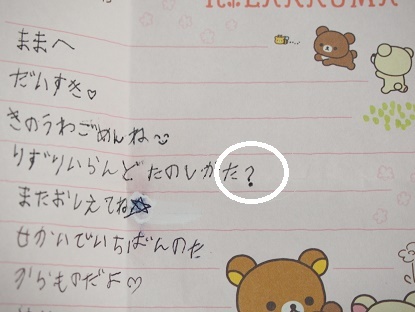 RILAKKUMA
ままへ
だいすき♡
きのうわごめんね
りずりいらんど たのしかた?
またおしえてね☆
せかいでいちばんのた
からものだよ♡